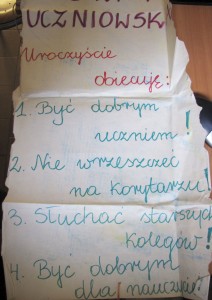 UCZNIOWSK
Uroczyście
obiecuję:
1. Być dobrym
uczniem!
2. Nie wrzeszczeć
na korytarzu!
3. Słuchać starszych
kolegów!
4. Być dobrym
dla nauczycieli